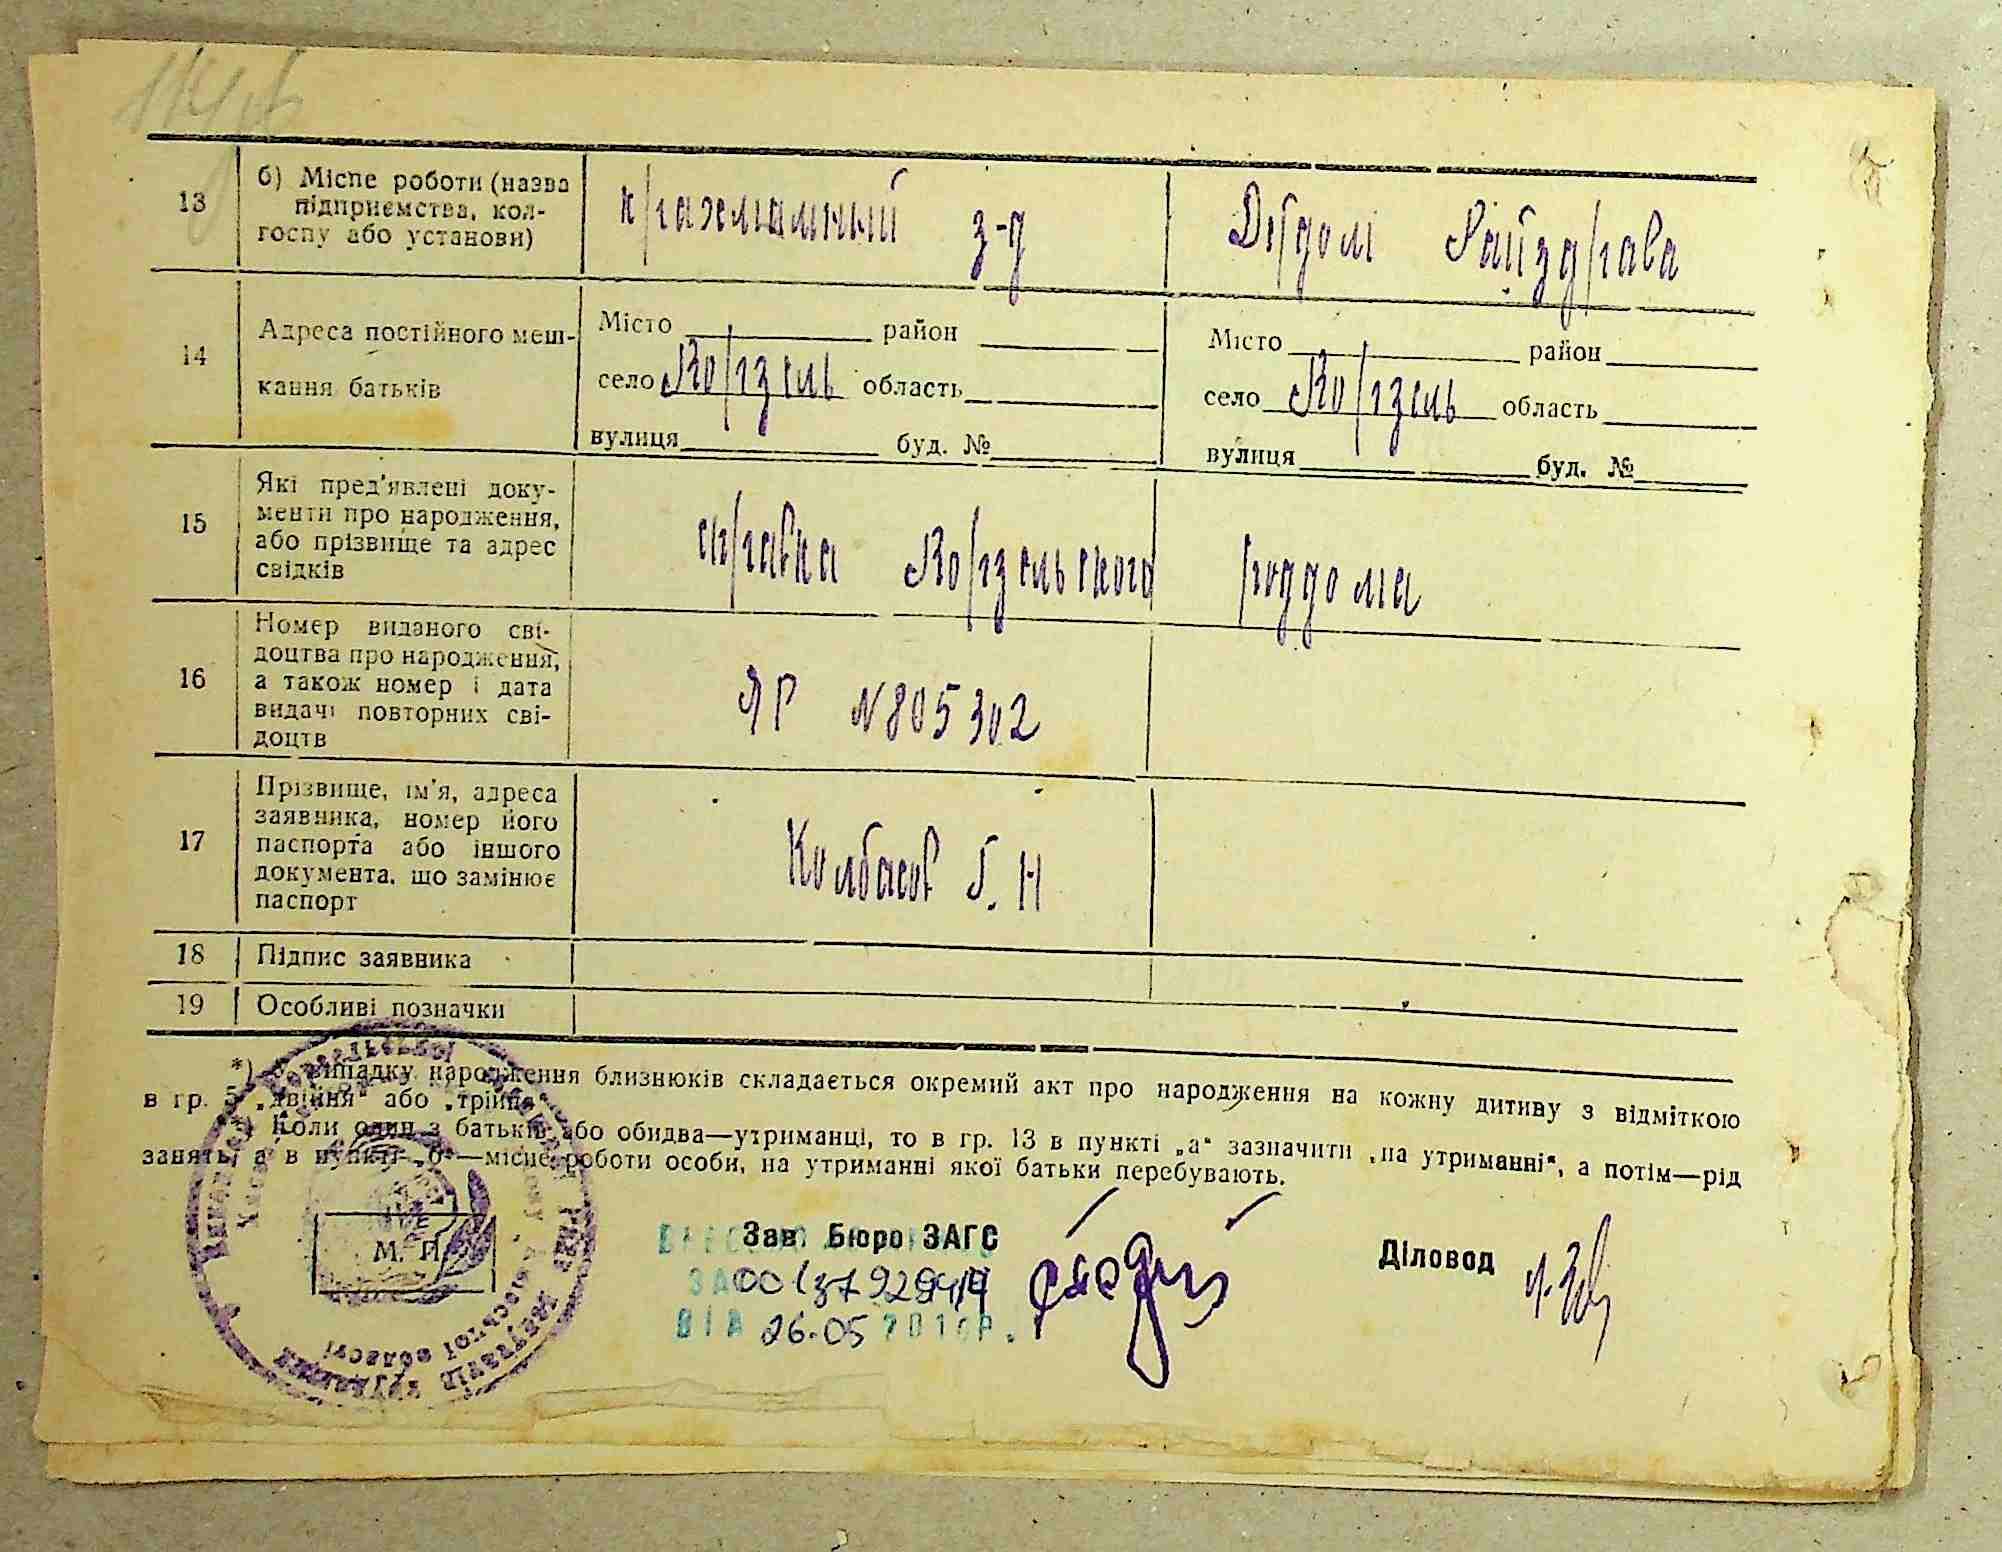 13
б) Місце роботи (назва
підприємства, кол-
госпу або установи)
крахмальный з-д
Детдом Райздрава
14
Адреса постійного меш-
кання батьків
Місто район
село Ворзель область
вулиця буд. №
Місто район
село Ворзель область
вулиця буд. №
15
Які пред'явлені доку-
менти про народження,
або прізвище та адрес
свідків
справка Ворзельского роддома
16
Номер виданого сві-
доцтва про народження,
а також номер і дата
видачі повторних сві-
доцтв
ЯР N 805302
17
Прізвище, ім'я, адреса
заявника, номер його
паспорта або іншого
документа, що замінює
паспорт
Колбасов Г. Н
18
Підпис заявника
19
Особливі позначки
*) випадку народження близнюків складається окремий акт про народження на кожну дитину з відміткою
в гр. 5 „двійня“ або „трійня“
Коли один з батьків або обидва—утриманці, то в гр. 13 в пункті „а“ зазначити „на утриманні“, а потім—рід
занять, а в пункті „б“—місце роботи особи, на утриманні якої батьки перебувають.
М. П.
Зав. Бюро ЗАГС
Діловод
ВІД 26.05 201 Р.
області